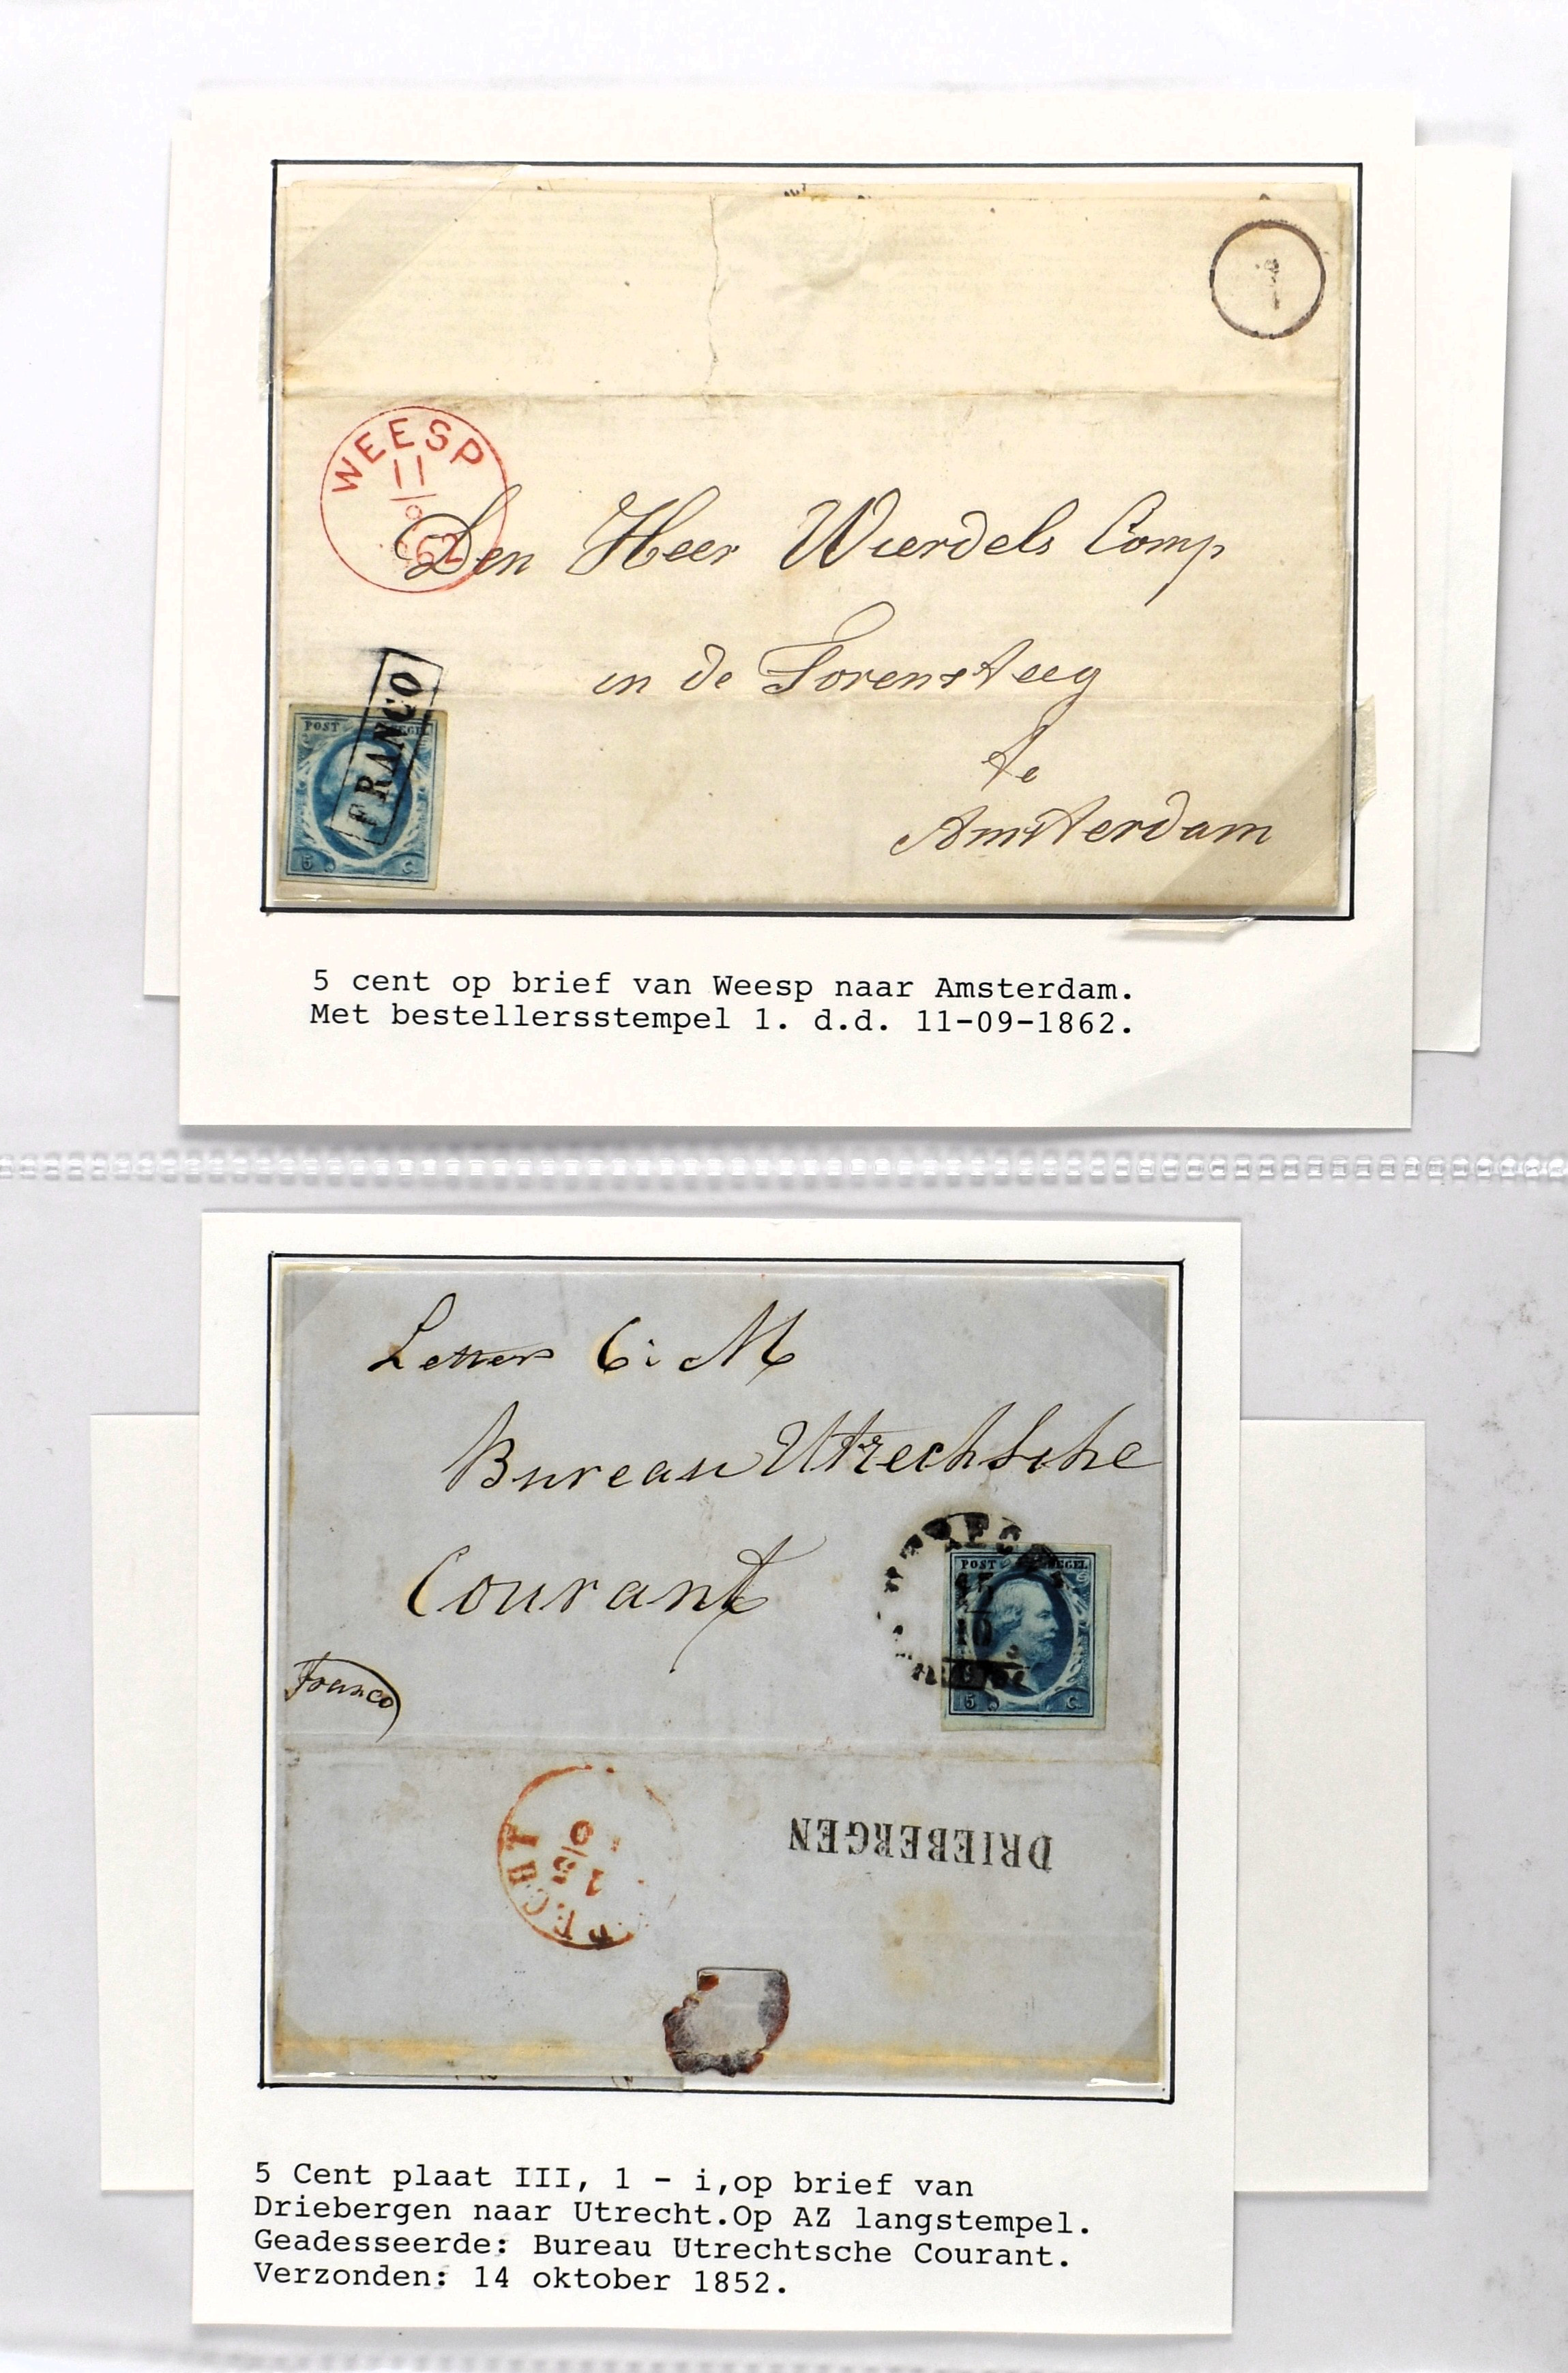 1
WEESP
11
62
Den Heer Wierdels Comp
in de Torensteeg
te
Amsterdam
FRANCO
POST
5 C.
5 cent op brief van Weesp naar Amsterdam.
Met bestellersstempel 1. d.d. 11-09-1862.
Letters C: M
Bureau Utrechtsche
Courant
Franco
UTRECHT
10
POST ZEGEL
5 C.
DRIEBERGEN
15
ECHT
5 Cent plaat III, 1 - i,op brief van
Driebergen naar Utrecht.Op AZ langstempel.
Geadesseerde: Bureau Utrechtsche Courant.
Verzonden: 14 oktober 1852.